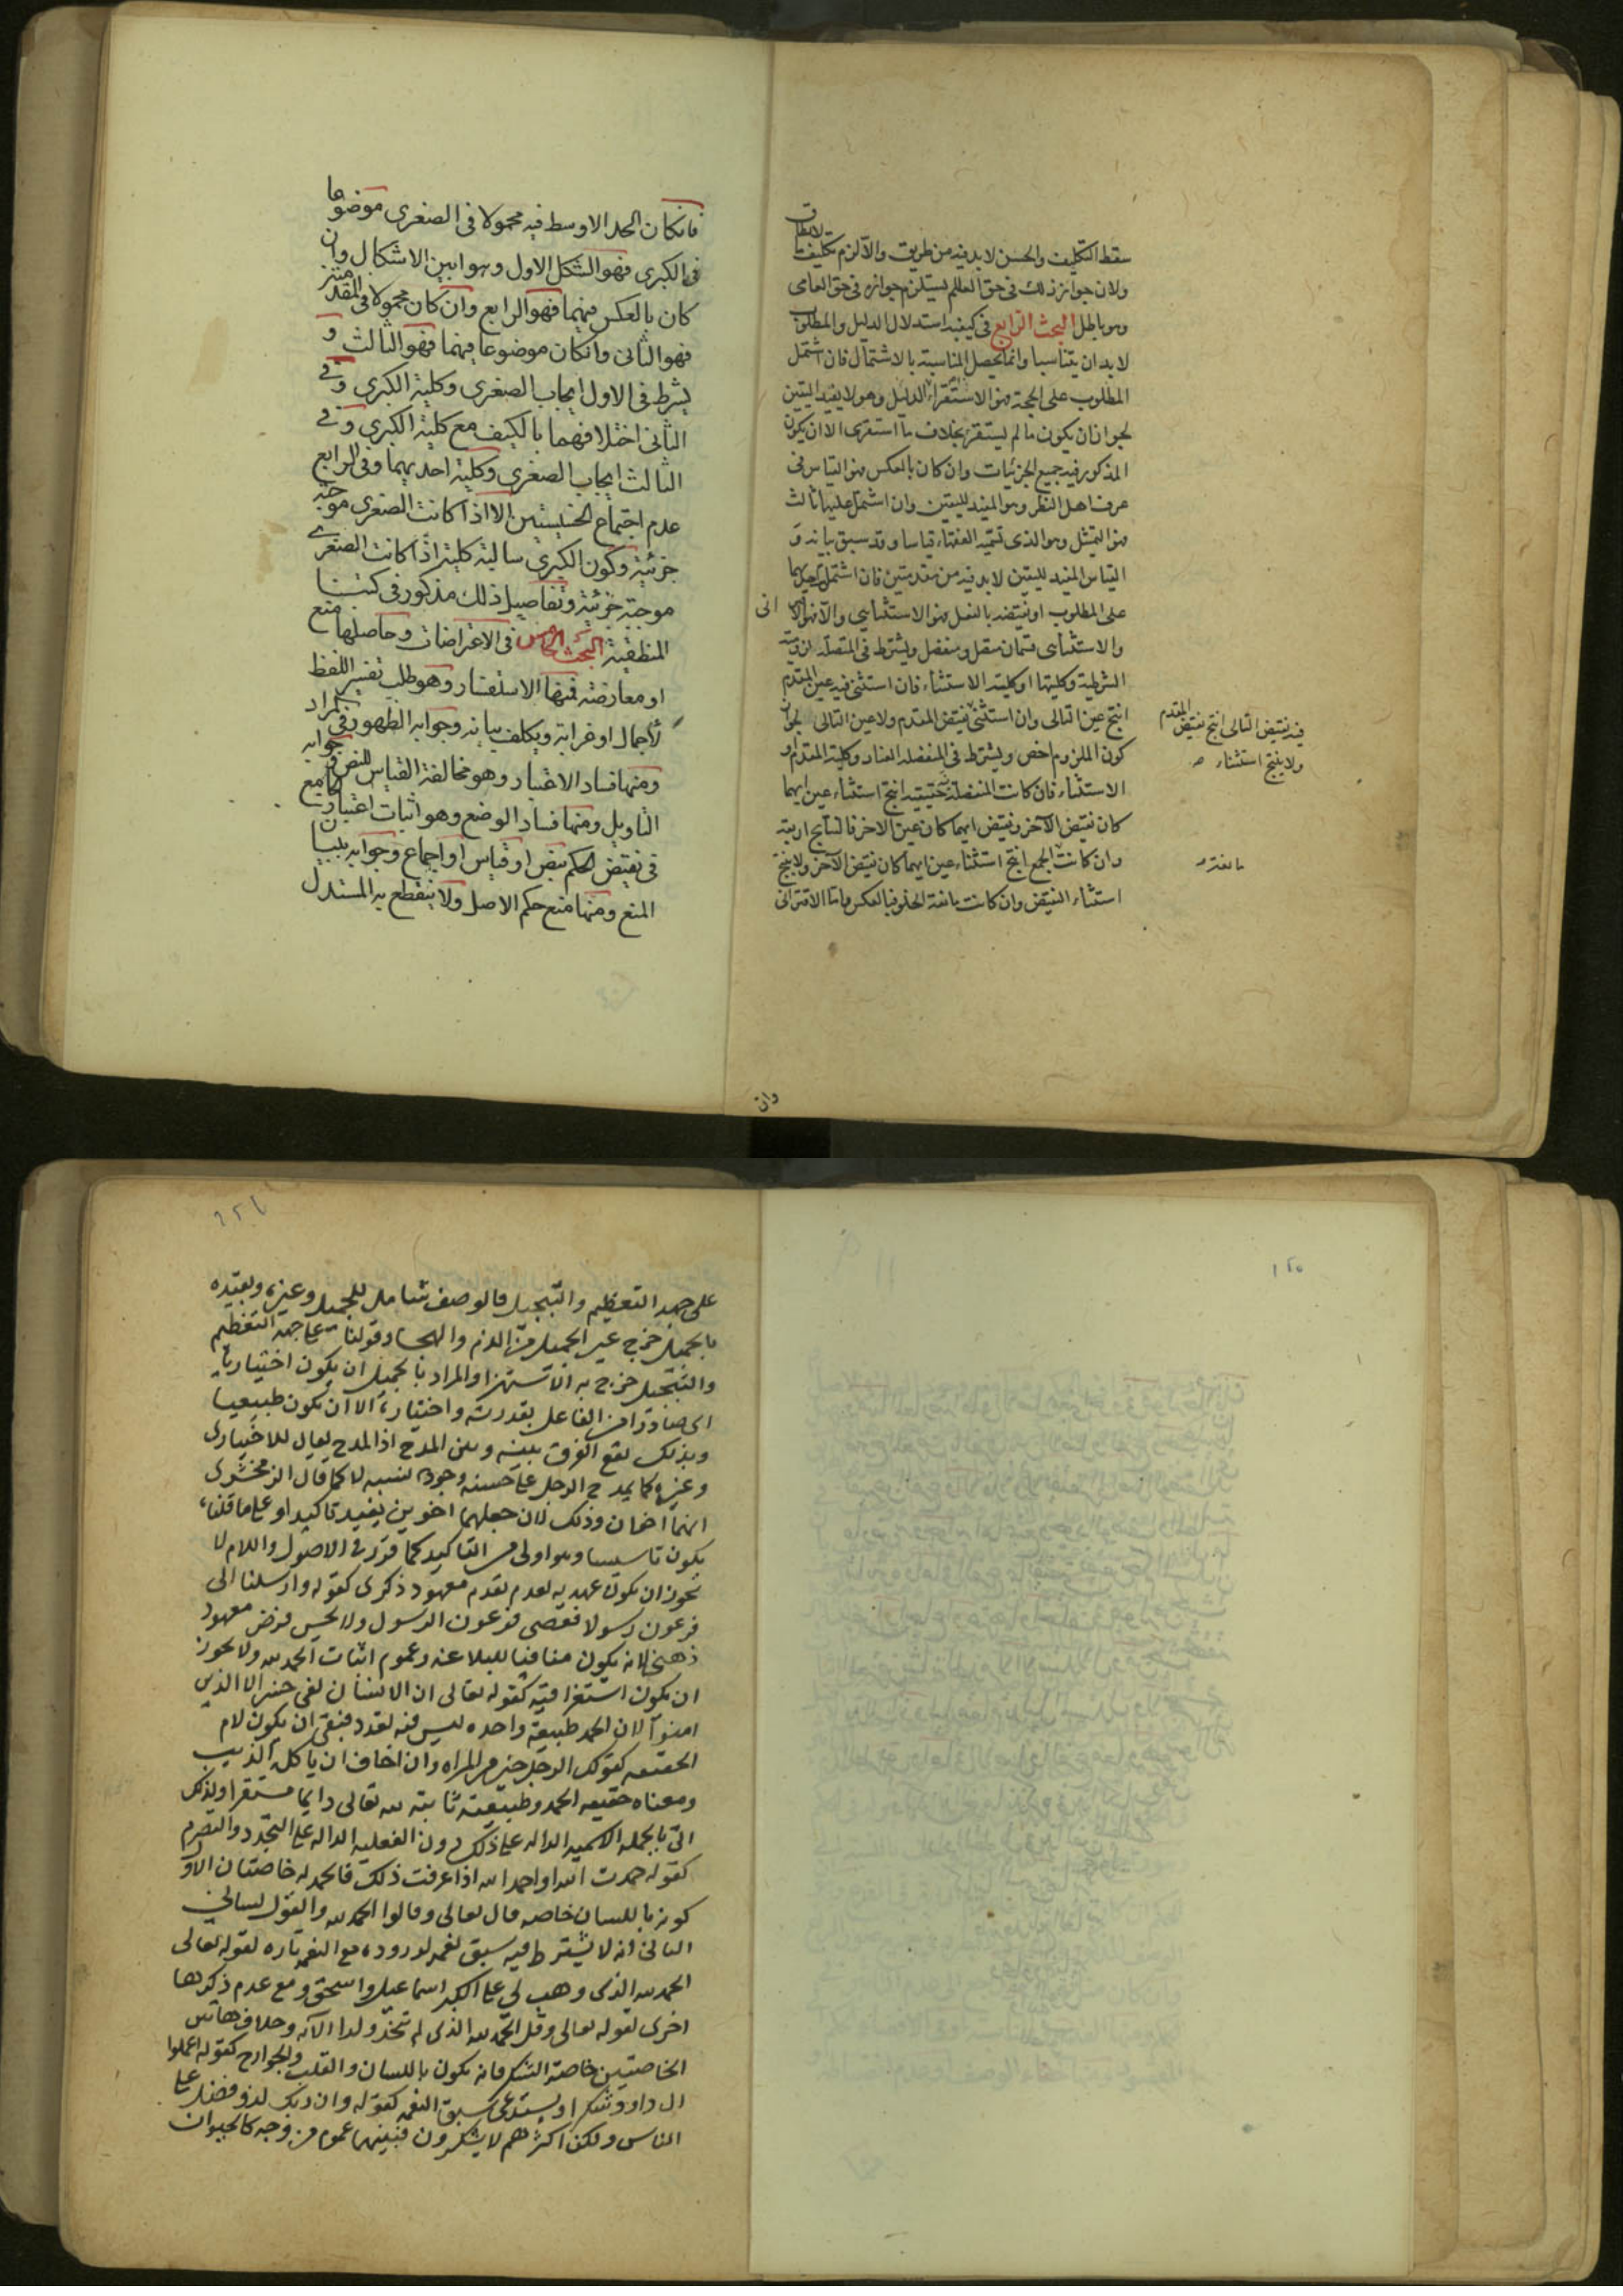 سقط التكليف والحسن لابد فيه من طريق والا لزم تكليف ما لا يطاق
ولان جواز ذلك في حق العالم يستلزم جوازه في حق العامى
وهو باطل البحث الرابع في كيفية استدلال الدليل والمطلوب
لابد ان يتناسبا وانما يحصل المناسبة بالاشتمال فان اشتمل
المطلوب على الحجة فهو الاستقراء الدليل وهو لا يفيد اليقين
لجواز ان يكون ما لم يستقر بخلاف ما استقرى الا ان يكون
المذكور فيه جميع الجزئيات وان كان بالعكس فهو القياس في
عرف اهل النظر وهو المفيد لليقين وان اشتمل عليهما ثالث
فهو التمثيل وهو الذى تسميه الفقهاء قياسا وقد سبق بيانه و
القياس المفيد لليقين لابد فيه من مقدمتين فان اشتمل احديهما
على المطلوب او نقيضه بالفعل فهو الاستثنايي والا فهو الاقترانى
والاستثناى قسمان متصل ومنفصل ويشترط في المتصلة لزومية
الشرطية وكليتها او كلية الاستثناء فان استثنى فيه عين المقدم
انتج عين التالى وان استثنى نقيض المقدم ولا عين التالى لجواز
فيه نقيض التالى انتج نقيض المقدم
ولا ينتج استثناء صـ
كون الملزوم اخص ويشترط في المنفصلة العناد وكلية المقدم او
الاستثناء فان كانت المنفصلة حقيقية انتج استثناء عين ايهما
كان نقيض الآخر ونقيض ايهما كان عين الاخر فالنتايج اربعة
وان كانت الجمع انتج استثناء عين ايهما كان نقيض الآخر ولا ينتج
مانعة صـ
استثناء النقيض وان كانت مانعة الخلو فبالعكس واما الاقترانى
وان
فانكان الحد الاوسط فيه محمولا في الصغرى موضوعا
في الكبرى فهو الشكل الاول وهو ابين الاشكال وان
كان بالعكس فيهما فهو الرابع وان كان محمولا في المقدمتين
فهو الثانى وانكان موضوعا فيهما فهو الثالث و
يشرط في الاول ايجاب الصغرى وكلية الكبرى وفي
الثانى اختلافهما بالكيف مع كلية الكبرى وفي
الثالث ايجاب الصغرى وكلية احديهما وفي الرابع
عدم اجتماع الخسيستين الا اذا كانت الصغرى موجبة
جزئية وكون الكبرى سالبة كلية اذا كانت الصغرى
موجبة جزئية وتفاصيل ذلك مذكور في كتبنا
المنطقية البحث الخامس في الاعتراضات وحاصلها منع
او معارضة فمنها الاستفسار وهو طلب تفسير اللفظ
لاجمال او غرابة ويكلف بيانه وجوابه الظهور في المراد
ومنها فساد الاعتبار وهو مخالفة القياس للنص وجوابه
التاويل ومنها فساد الوضع وهو اثبات اعتبار الجامع
في نقيض الحكم بنص او قياس او اجماع وجوابه ببيان
المنع ومنها منع حكم الاصل ولا ينقطع به المستدل
١٢٥
على جهة التعظيم والتبجيل فالوصف شامل للجميل وغيره وبقيده
بالجميل خرج غير الجميل من الذم والهجا وقولنا على جهة التعظيم
والتبجيل خرج به الاستهزا والمراد بالجميل ان يكون اختياريا
اى صادرا من الفاعل بقدرته واختياره الا ان يكون طبيعيا
وبذلك يقع الفرق بينه وبين المدح اذ المدح يقال للاختيارى
وغيره كما يمدح الرجل على حسنه وجودة نسبه لا كما قال الزمخشرى
انهما اخوان وذلك لان جعلهما اخوين يفيد تاكيدا وعلى ما قلناه
يكون تاسيسا وهو اولى من التاكيد كما قرر في الاصول واللام لا
يجوز ان يكون عهدية لعدم تقدم معهود ذكرى كقوله وارسلنا الى
فرعون رسولا فعصى فرعون الرسول ولا يحسن فرض معهود
ذهنى لانه يكون منافيا للبلاغه وعموم اثبات الحمد لله ولا يجوز
ان يكون استغراقية كقوله تعالى ان الانسان لفى خسر الا الذين
امنوا لان الحمد طبيعة واحده ليس فيه تعدد فبقى ان يكون لام
الحقيقه كقولك الرجل خير من المراه وان اخاف ان ياكله الذيب
ومعناه حقيقه الحمد وطبيعته ثابتة لله تعالى دايما مستقرا ولذلك
اتى بالجمله الاسميه الداله على ذلك دون الفعليه الداله على التجدد والتصرم
كقوله حمدت الله او احمد الله اذا عرفت ذلك فالحمد له خاصتان الاولى
كونه باللسان خاصه قال تعالى وقالوا الحمد لله والقول لسانى
الثانى انه لا يشترط فيه سبق نعمه لوروده مع النعمه تاره كقوله تعالى
الحمد لله الذى وهب لى على الكبر اسماعيل واسحق ومع عدم ذكرها
اخرى كقوله تعالى وقل الحمد لله الذى لم يتخذ ولدا الآيه وخلاف هاتين
الخاصتين خاصة الشكر فانه يكون باللسان والقلب والجوارح كقوله اعملوا
ال داوود شكرا ويستدعى سبق النعمه كقوله وان ربك لذو فضل على
الناس ولكن اكثرهم لا يشكرون فبينهما عموم من وجه كالحيوان